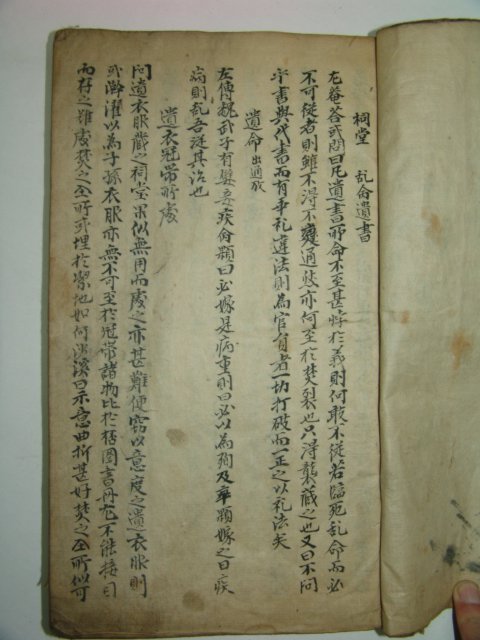 祠堂 乱命遺書
尤菴答或問曰凡遺書所命不至甚悖於義則何敢不從若臨死乱命而必
不可從者則雖不得不變通然亦何至於焚裂也只得襲藏之也又曰不問
手書與代書而有乎礼違法則為官員者一切打破而一正之以礼法矣
遺命
左傳魏武子有嬖妾疾命顆曰必嫁是病重則曰必以為殉及卒顆嫁之曰疾
病則乱吾從其治也
遺衣冠帶所處
問遺衣服藏之祠堂果似無用而處之亦甚難便窃以意度之遺衣服則
或澣濯以為子孫衣服亦無不可至於冠帶諸物比於桮圈書冊尤不能接目
而存之難處焚之全所或埋於潔地如何溪曰示意曲折甚好焚之全所似可